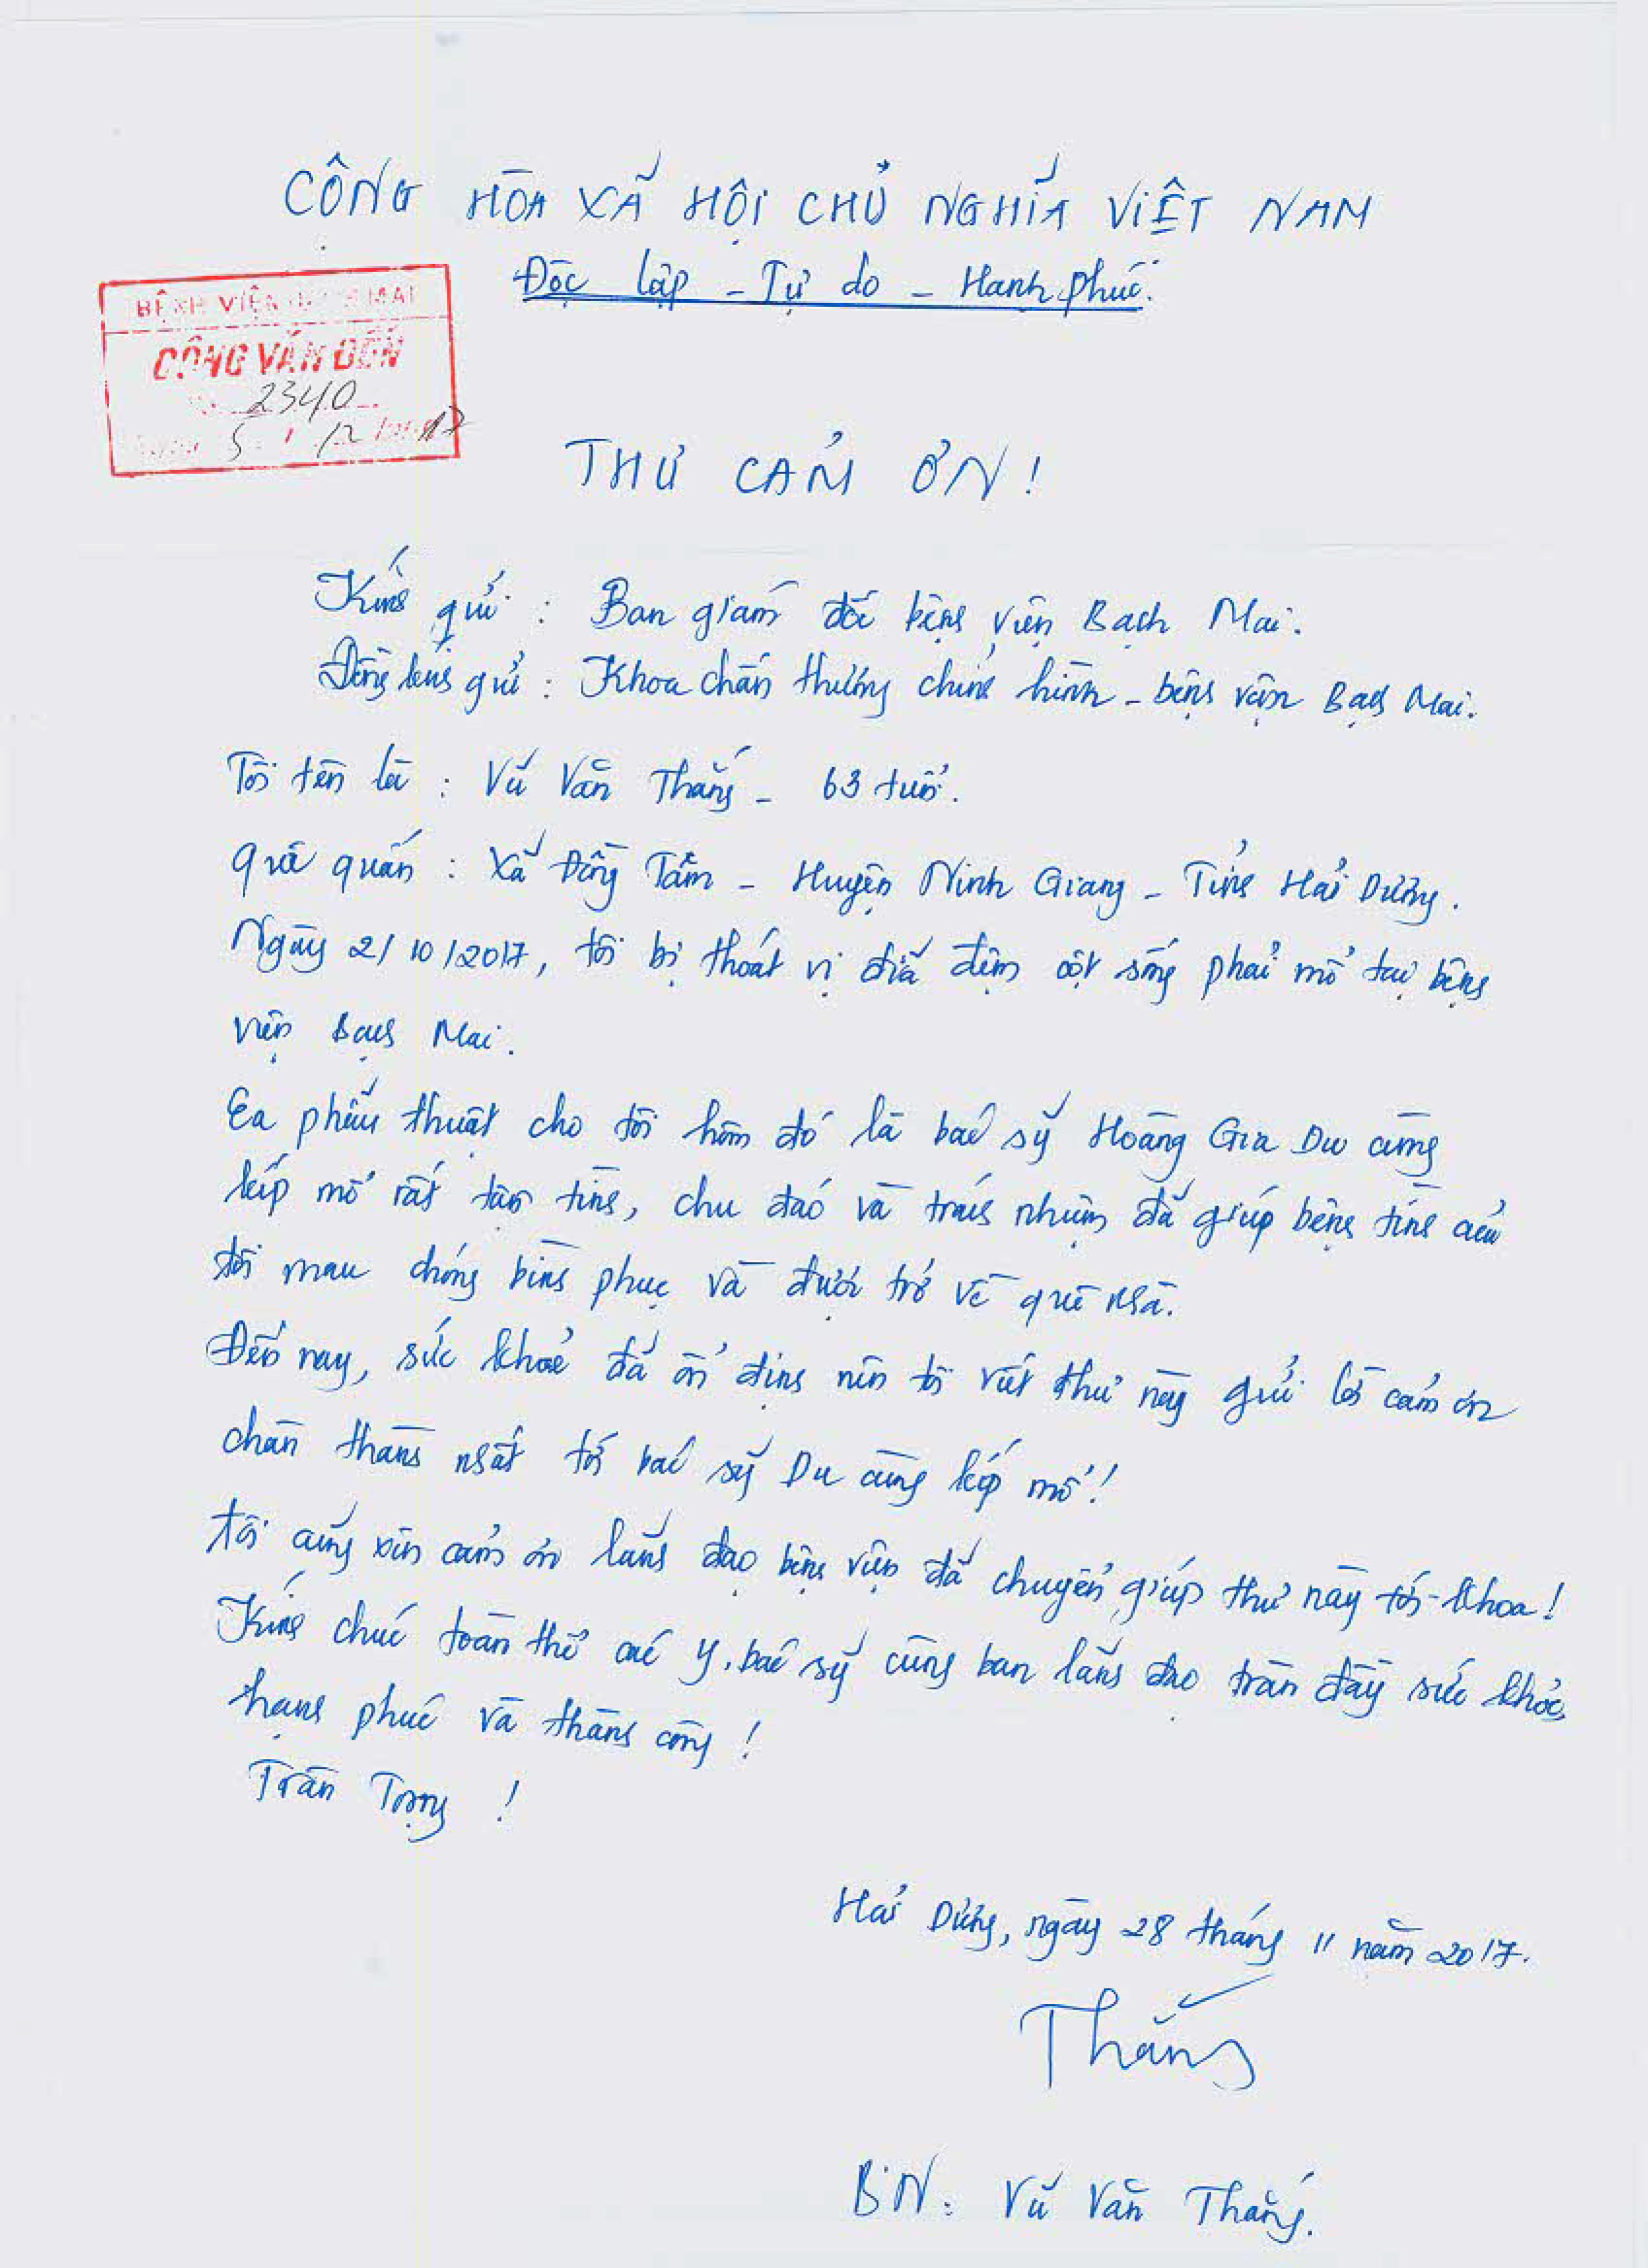 CỘNG HÒA XÃ HỘI CHỦ NGHĨA VIỆT NAM
Độc lập - Tự do - Hạnh phúc.
BỆNH VIỆN BẠCH MAI
CÔNG VĂN ĐẾN
2340
5 / 12 / 2017
THƯ CẢM ƠN!
Kính gửi : Ban giám đốc bệnh viện Bạch Mai.
Đồng kính gửi : Khoa chấn thương chỉnh hình - bệnh viện Bạch Mai.
Tôi tên là : Vũ Văn Thắng - 63 tuổi.
Quê quán : Xã Đồng Tâm - Huyện Ninh Giang - Tỉnh Hải Dương.
Ngày 2/10/2017, tôi bị thoát vị đĩa đệm cột sống phải mổ tại bệnh
viện Bạch Mai.
Ca phẫu thuật cho tôi hôm đó là bác sỹ Hoàng Gia Du cùng
kíp mổ rất tận tình, chu đáo và trách nhiệm đã giúp bệnh tình của
tôi mau chóng bình phục và được trở về quê nhà.
Đến nay, sức khoẻ đã ổn định nên tôi viết thư này gửi lời cảm ơn
chân thành nhất tới bác sỹ Du cùng kíp mổ!
Tôi cũng xin cảm ơn lãnh đạo bệnh viện đã chuyển giúp thư này tới khoa!
Kính chúc toàn thể các y, bác sỹ cùng ban lãnh đạo tràn đầy sức khỏe,
hạnh phúc và thành công !
Trân Trọng !
Hải Dương, ngày 28 tháng 11 năm 2017.
Thắng
BN: Vũ Văn Thắng.